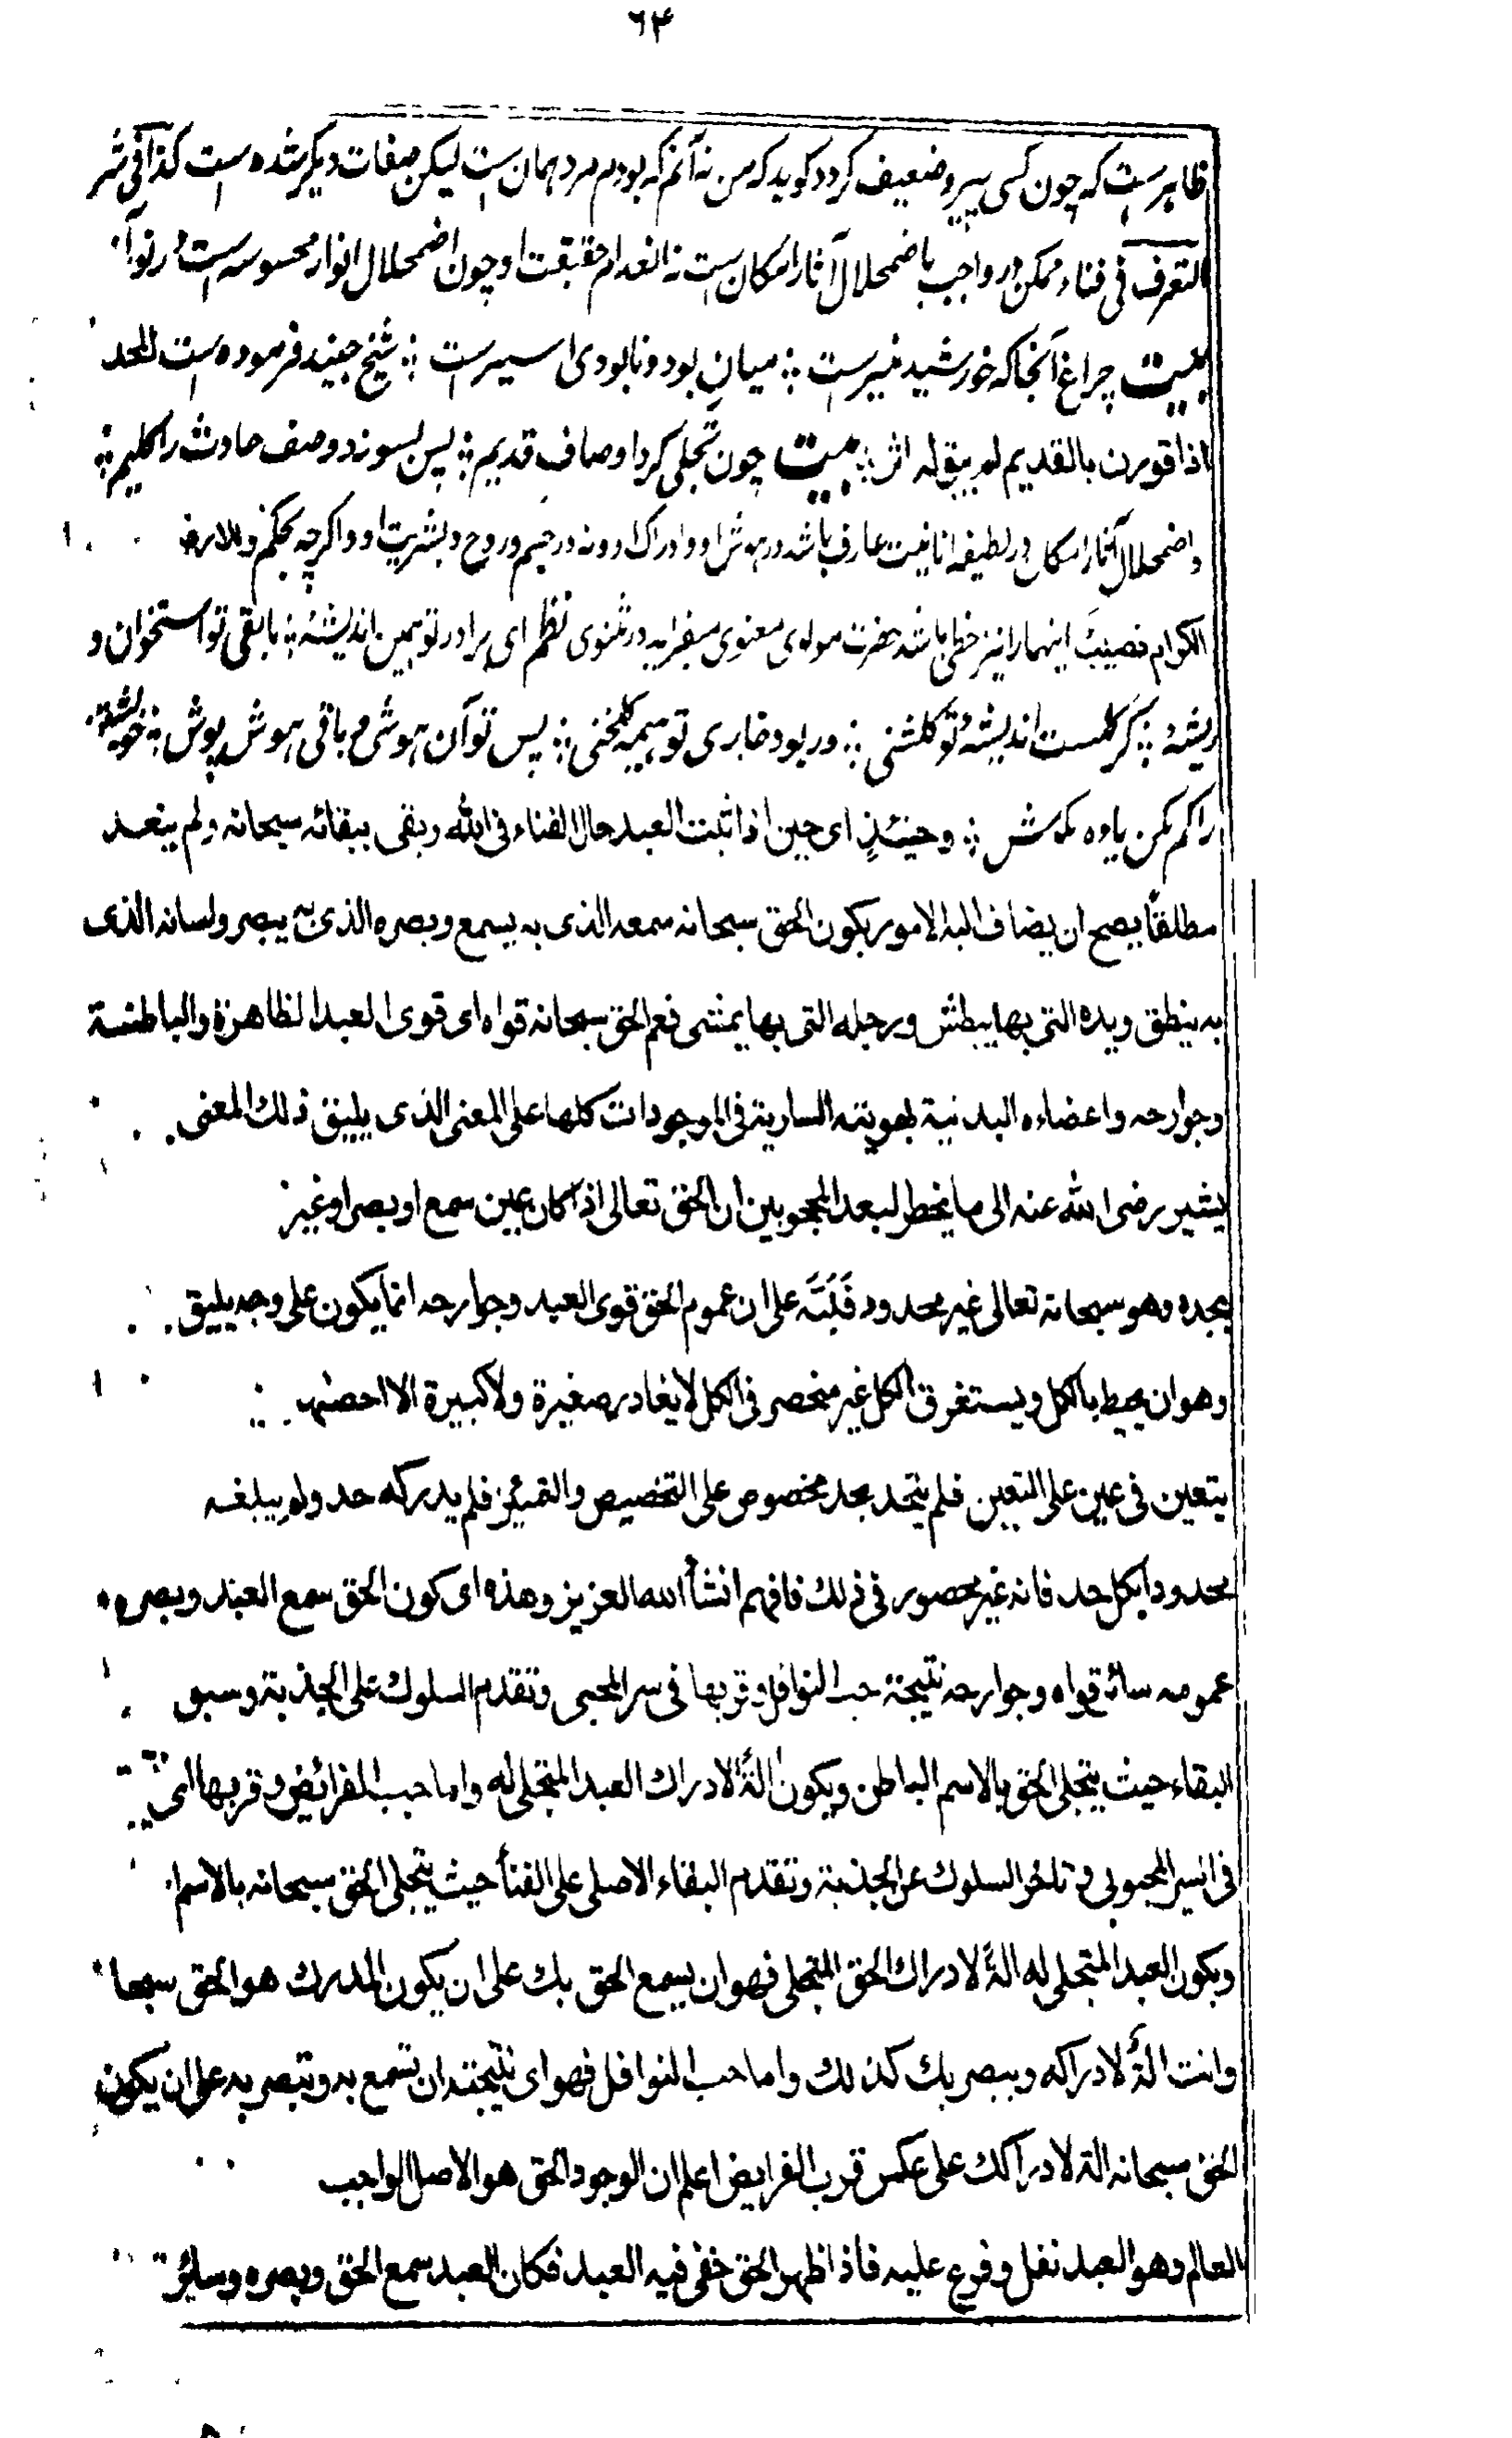 ۶۴
ظاہرست کہ چون کسی پیر وضعیف کردد کوید کہ من نہ آنم کہ بودم مرد ہمان ست لیکن صفات دیگر شدہ ست کذا فی شر
التعرف فی فناء ممکن در واجب باضمحلال آثار امکان ست نہ انعدام حقیقت او چون اضمحلال انوار محسوسہ ست در نور آ
بیت چراغ آنجا کہ خورشید منیر ست ؛ میان بود و نابودی اسیر ست ؛ شیخ جنید فرمودہ ست المحد
اذا قورن بالقدیم لم یبق لہ اثر ؛ بیت چون تجلی کرد اوصاف قدیم ؛ پس بسوزد وصف حادث را کلیم ؛
و اضمحلال آثار امکان در لطیفہ انانیت عارف باشد در ہوش او و ادراک او و نہ در جسم و روح و بشریت او و اکرچہ بحکم وللارض
الکرام نصیب اینہا را نیز حظی باشد حضرت مولوی معنوی میفرماید در مثنوی نظم ای برادر تو ہمین اندیشۂ ؛ مابقی تو استخوان و
ریشۂ ؛ کر کلست اندیشۂ تو کلشنی ؛ ور بود خاری تو ہیمہ کلخنی ؛ پس تو آن ہوشی و باقی ہوش پوش ؛ خویشتن
را کم مکن یاوہ مکوش ؛ و حینئذٍ ای حین اذا ثبت العبد حال الفناء فی الله وبقی ببقائه سبحانه ولم ینعد
مطلقًا یصح ان یضاف الیه الامور یکون الحق سبحانه سمعه الذی به یسمع وبصره الذی به یبصر ولسانه الذی
به ینطق ویده التی بها یبطش ورجله التی بها یمشی فعم الحق سبحانه قواه ای قوی العبد الظاهرة والباطنة
وجوارحه واعضاءه البدنیة بهویته الساریة فی الموجودات کلها علی المعنی الذی یلیق ذلك المعنی
یشیر رضی الله عنه الی ما یخطر لبعد المحجوبین ان الحق تعالی اذا کان عین سمع او بصر او غیر
بحده وهو سبحانه تعالی غیر محدود فَنَبَّه علی ان عموم الحق قوی العبد وجوارحه انما یکون علی وجه یلیق
وهو ان یحیط بالکل ویستغرق الکل غیر منحصر فی الکل لا یغادر صغیرة ولا کبیرة الا احصیها
یتعین فی عین علی التعین فلم یتحد بحد مخصوص علی التخصیص والتمییز فلم یدرکه حد ولم یبلغه
محدودا بکل حد فانه غیر محصور فی ذلك فافهم انشأ الله العزیز وهذه ای کون الحق سمع العبد وبصره
عمومه سائر قواه وجوارحه نتیجة حب النوافل وقربها فی سر المحبی وتقدم السلوك علی الجذبة وسبق
البقاء حیث یتجلی الحق بالاسم الباطن ویکون الةً لادراك العبد المتجلی له واما حب الفرائض وقربها ای
فی السر المحبوبی وتاخر السلوك عن الجذبة وتقدم البقاء الاصلی علی الفنأ حیث یتجلی الحق سبحانه بالاسم
ویکون العبد المتجلی له الةً لادراك الحق المتجلی فهو ان یسمع الحق بك علی ان یکون المدرك هو الحق سبحا
وانت الةٌ لادراکه ویبصر بك کذلك واما حب النوافل فهو ای نتیجته ان تسمع به وتبصر به علی ان یکون
الحق سبحانه الة لادراکك علی عکس قرب الفرایض اعلم ان الوجود الحق هو الاصل الواجب
العالم وهو العبد نفل وفرع علیه فاذا ظهر الحق خفی فیه العبد فکان العبد سمع الحق وبصره وسائر